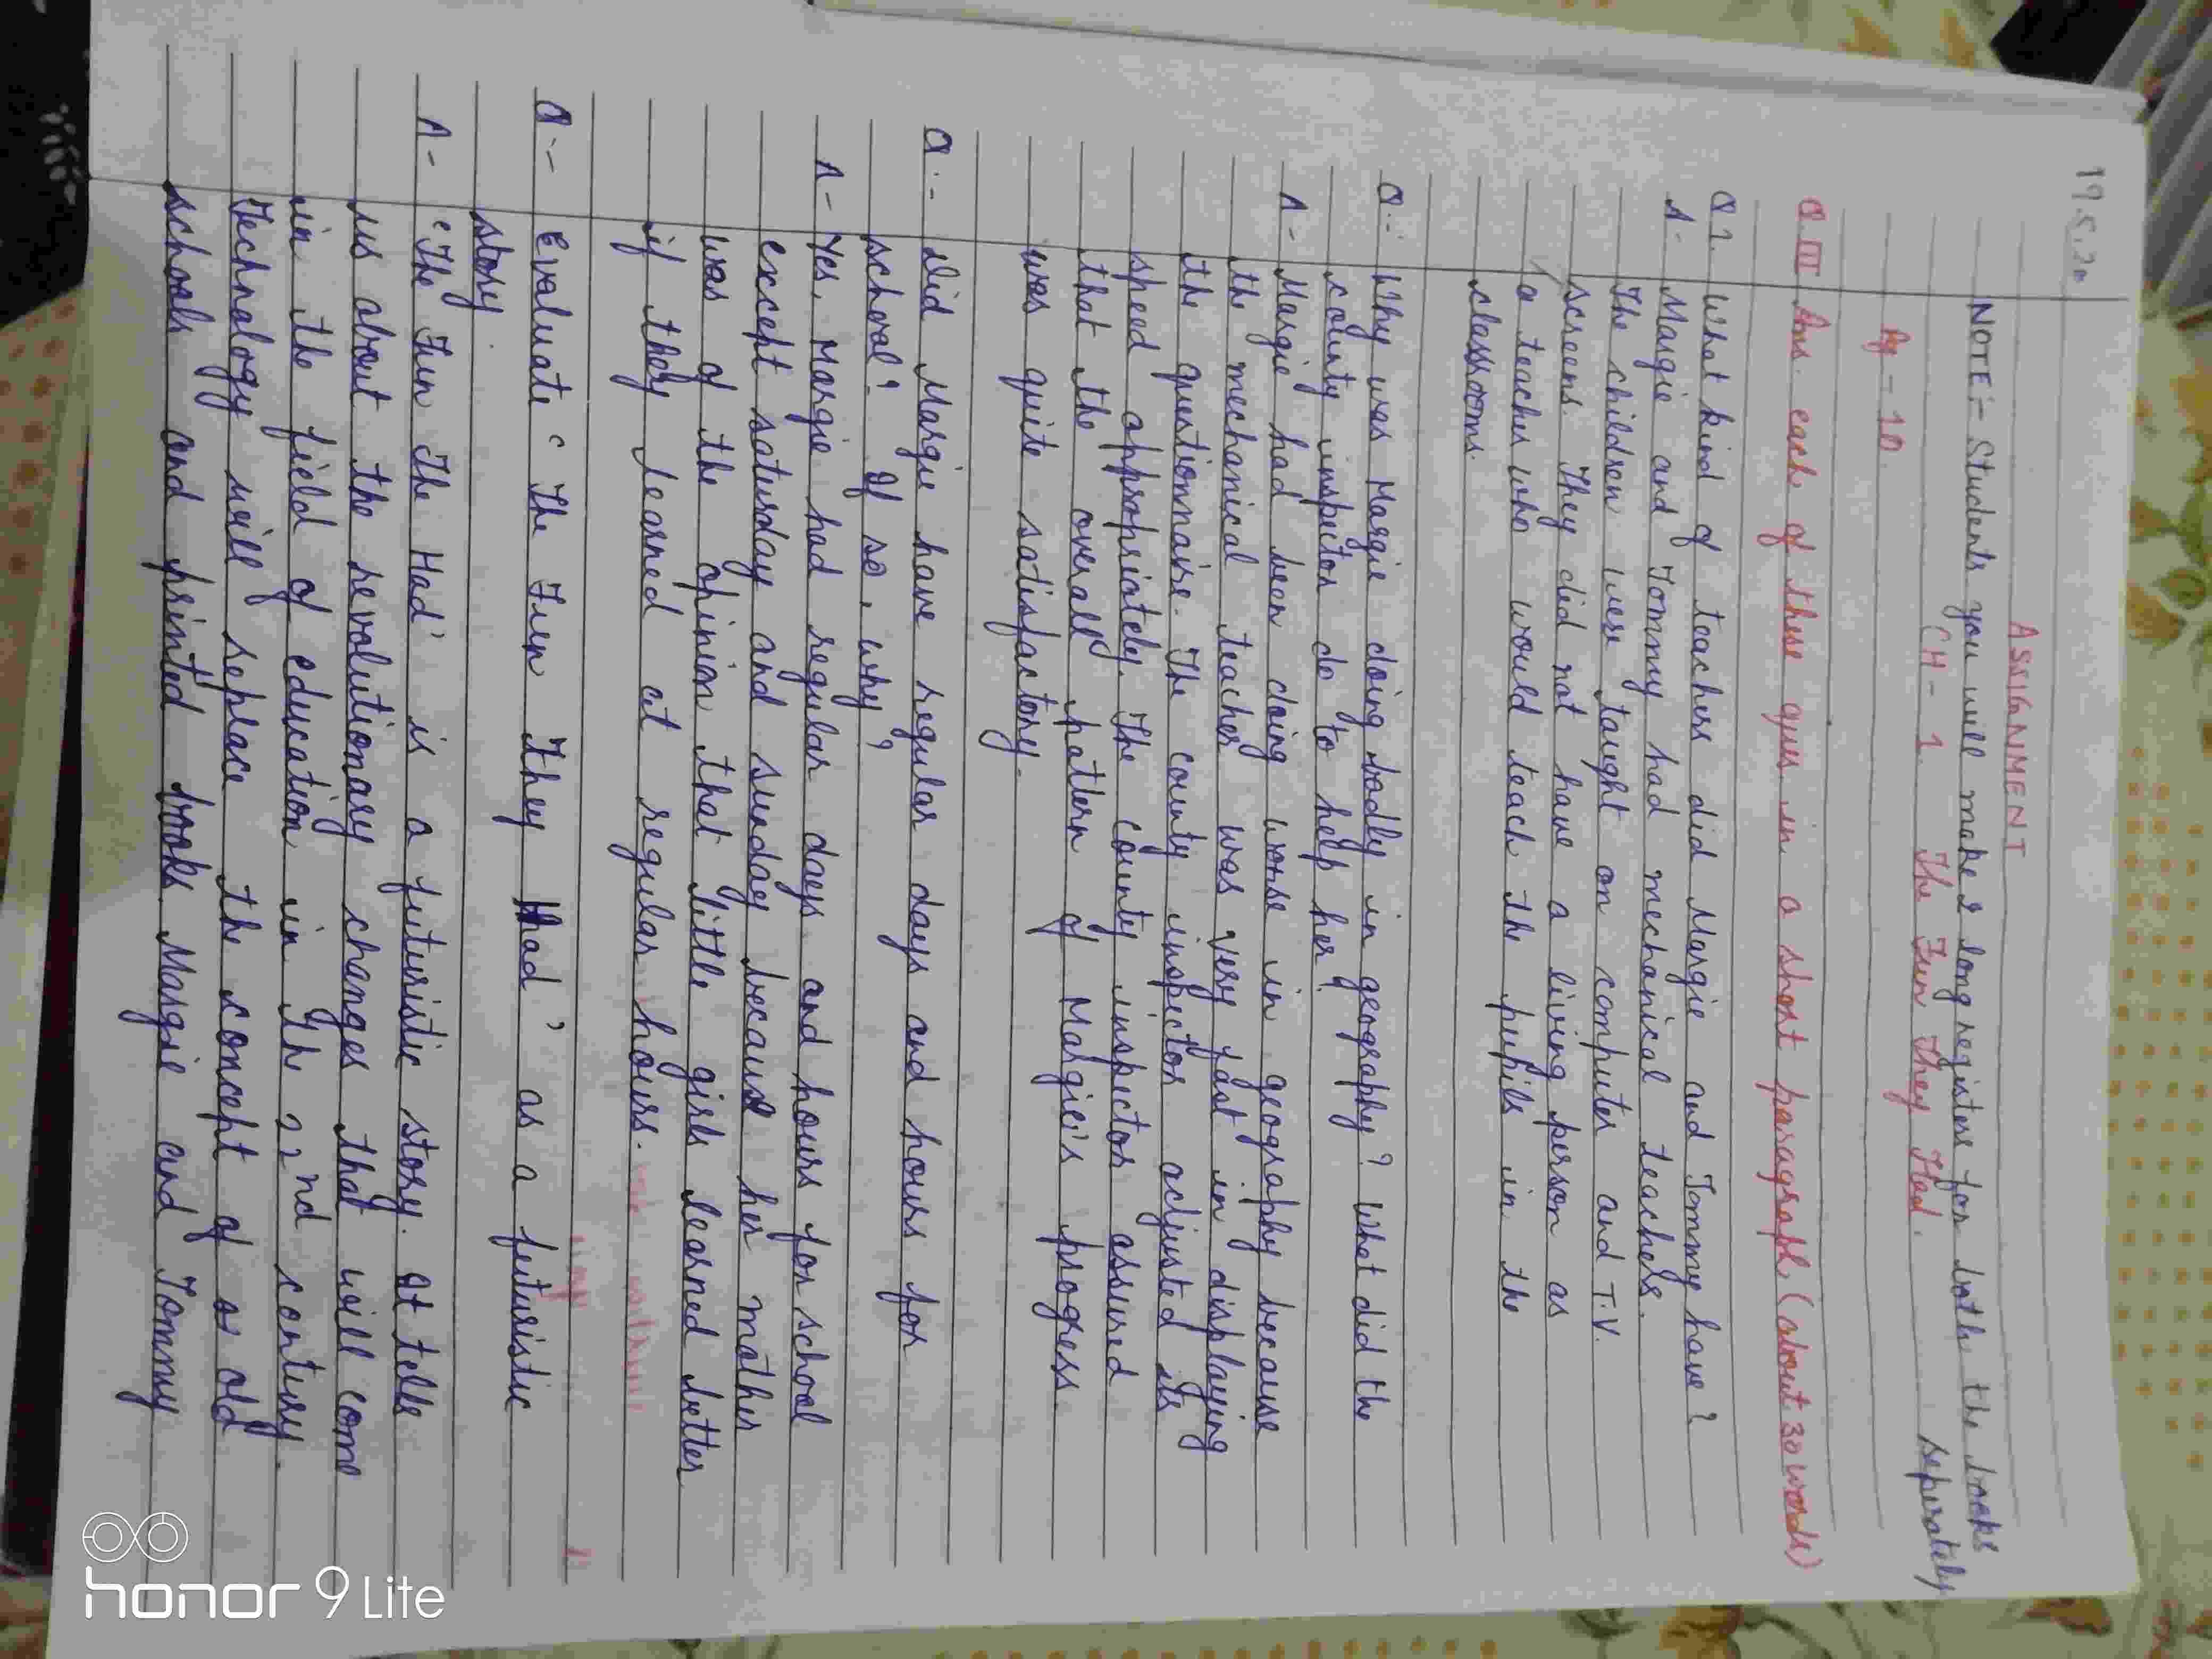 19.5.20
ASSIGNMENT
NOTE:- Students you will make 2 long registers for both the books
seperately
CH - 1 The Fun They Had.
Pg - 10.
Q.III Ans. each of these ques in a short paragraph (about 30 words)
Q 1. What kind of teachers did Margie and Tommy have?
A - Margie and Tommy had mechanical teachers.
The children were taught on computer and T.V.
screens. They did not have a living person as
a teacher who would teach the pupils in the
classrooms.
Q :- Why was Margie doing badly in geography? What did the
county inspector do to help her?
A - Margie had been doing worse in geography because
the mechanical teacher was very fast in displaying
the questionnaire. The county inspector adjusted its
speed appropriately. The county inspector assured
that the overall pattern of Margie's progress
was quite satisfactory.
Q :- Did Margie have regular days and hours for
school? If so, why?
A - Yes, Margie had regular days and hours for school
except saturday and sunday because her mother
was of the opinion that little girls learned better
if they learned at regular hours.
Q :- Evaluate 'The Fun They Had' as a futuristic
story.
A - 'The Fun The Had' is a futuristic story. It tells
us about the revolutionary changes that will come
in the field of education in the 22nd century.
Technology will replace the concept of s old
schools and printed books. Margie and Tommy
honor 9 Lite